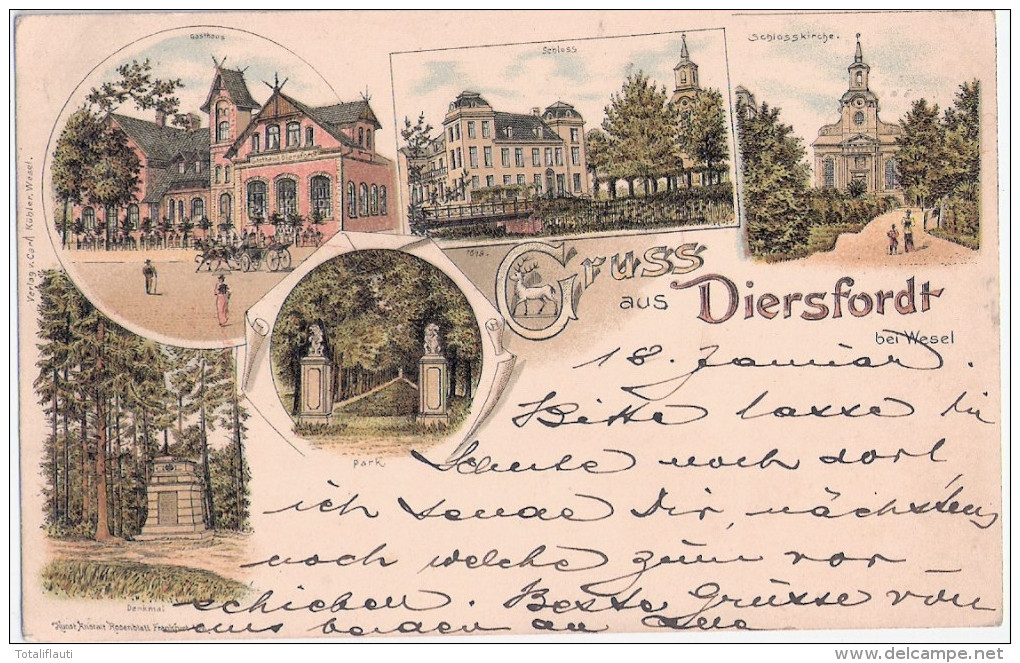 Gasthaus
Schloss
Schlosskirche.
Gasthaus Diersfordt
Verlag v. Carl Kübler, Wesel.
1015.
Gruss
aus Diersfordt
bei Wesel
Park
Denkmal
18. Januar.
Bitte lasse die
Schute noch dort,
ich sende Dir, nächstens
noch welche zum vor
schieben. Beste Grüsse von
uns beiden an
Kunst Anstalt Rosenblatt Frankfurt
© Totaliflauti
www.delcampe.net